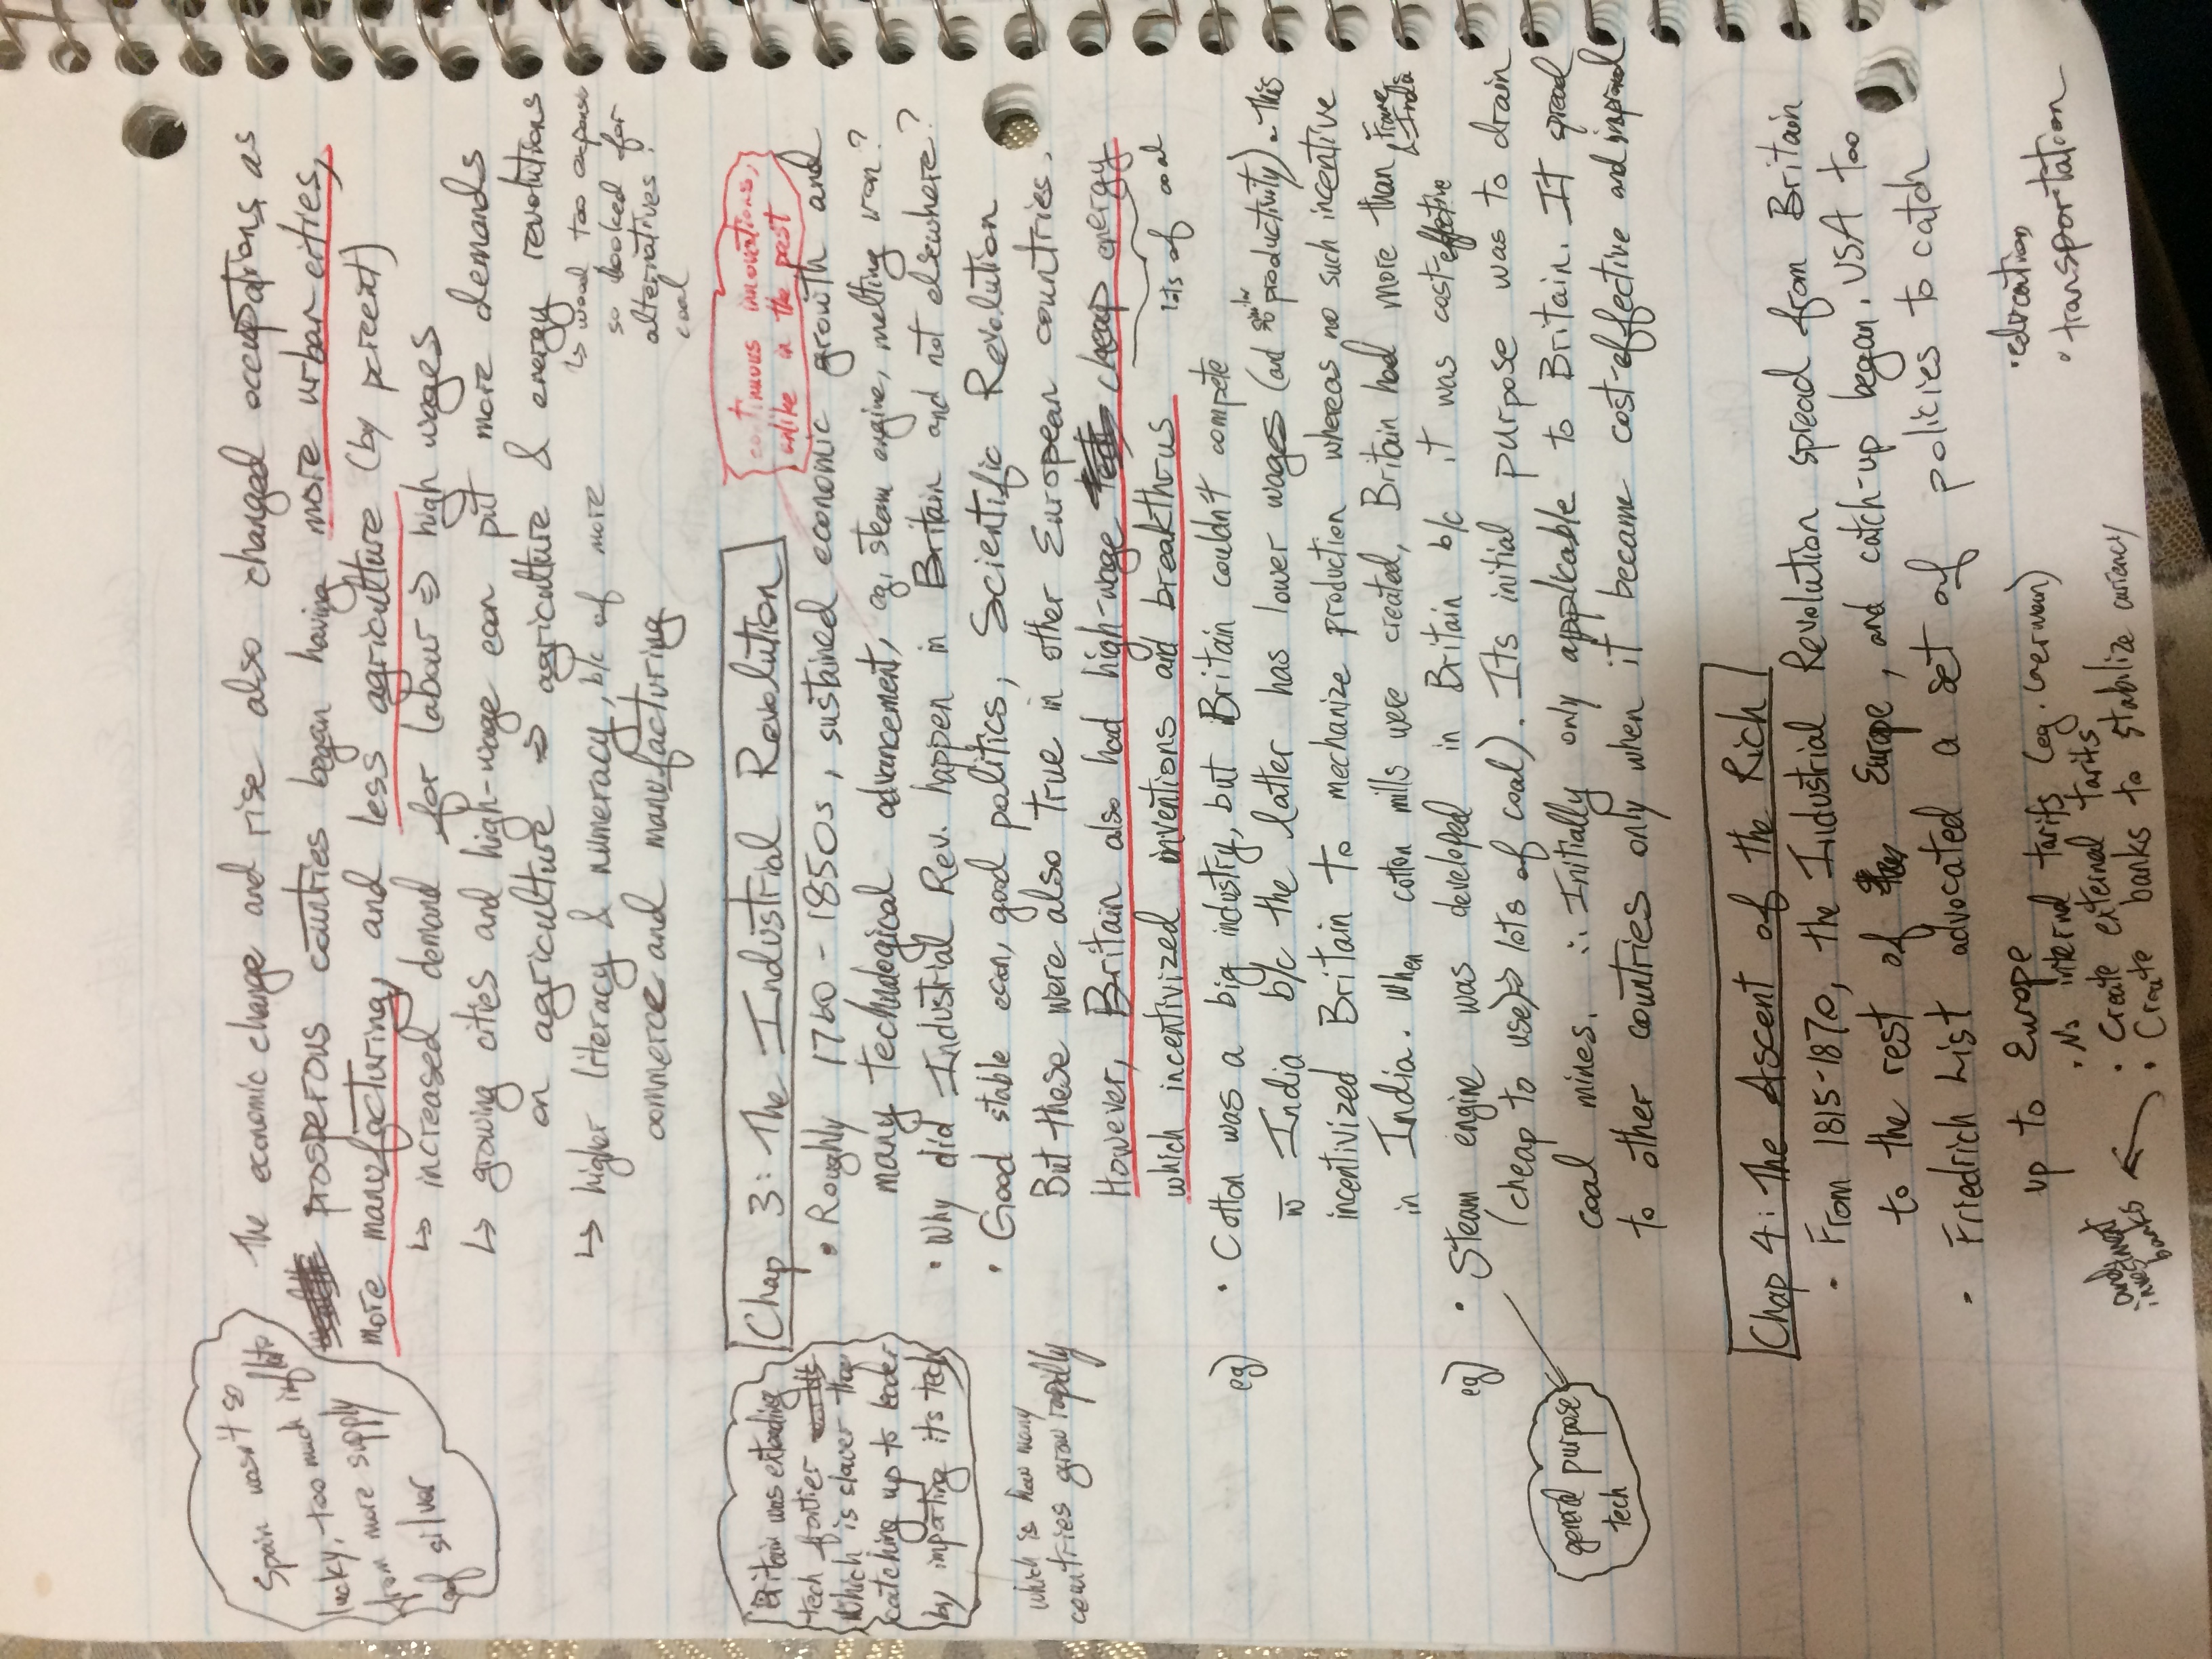 Spain wasn't so
lucky, too much inflatio
from more supply
of silver
The economic change and rise also changed occupations, as
prosperous countries began having more urban cities,
more manufacturing, and less agriculture (by percent)
↳ increased demand for labour ⇒ high wages
↳ growing cities and high-wage econ put more demands
on agriculture ⇒ agriculture & energy revolutions
↳ wood too expensi
so looked for
alternatives:
coal
↳ higher literacy & numeracy, b/c of more
commerce and manufacturing
Chap 3: The Industrial Revolution
continuous innovations,
unlike in the past
Britain was extending
tech fontier
which is slower than
catching up to leader
by importing its tech
which is how many
countries grow rapidly
• Roughly 1760 - 1850s, sustained economic growth and
many technological advancement, eg, steam engine, melting iron?
• Why did Industrial Rev. happen in Britain and not elsewhere?
• Good stable econ, good politics, Scientific Revolution
But these were also true in other European countries.
However, Britain also had high-wage cheap energy
lots of coal
which incentivized inventions and breakthrus
eg) • Cotton was a big industry, but Britain couldn't compete
w̄ India b/c the latter has lower wages (and similar productivity). This
incentivized Britain to mechanize production whereas no such incentive
in India. When cotton mills were created, Britain had more than France
& India
eg) • Steam engine was developed in Britain b/c it was cost-effective
(cheap to use)⇒ lots of coal). Its initial purpose was to drain
coal mines. ∴ Initially only applicable to Britain. It spread
to other countries only when it became cost-effective and improved
general purpose
tech
Chap 4: The Ascent of the Rich
• From 1815-1870, the Industrial Revolution spread from Britain
to the rest of Europe, and catch-up began. USA too
• Friedrich List advocated a set of policies to catch
up to Europe
• No internal tarifs (eg. German)
• Create external tarifs
• Create banks to stabilize currency
and
investment
banks
• education
• transportation